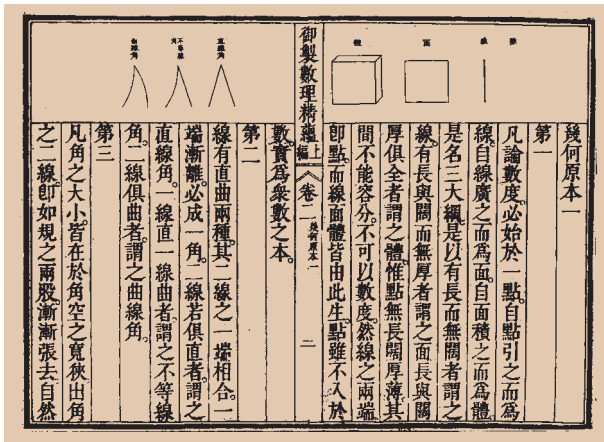 點
線
面
體
幾何原本一
第一
凡論數度。必始於一點。自點引之而爲
線。自線廣之而爲面。自面積之而爲體。
是名三大綱。是以有長而無闊者謂之
線。有長與闊而無厚者謂之面。長與闊
厚俱全者謂之體。惟點無長闊厚薄。其
間不能容分。不可以數度。然線之兩端
卽點。而線面體皆由此生。點雖不入於
御製數理精蘊 上編 卷二 幾何原本一 二
直線角
不等線角
曲線角
數。實爲衆數之本。
第二
線有直曲兩種。其二線之一端相合。一
端漸離。必成一角。二線若俱直者。謂之
直線角。一線直一線曲者。謂之不等線
角。二線俱曲者。謂之曲線角。
第三
凡角之大小。皆在於角空之寬狹。出角
之二線。卽如規之兩股。漸漸張去。自然